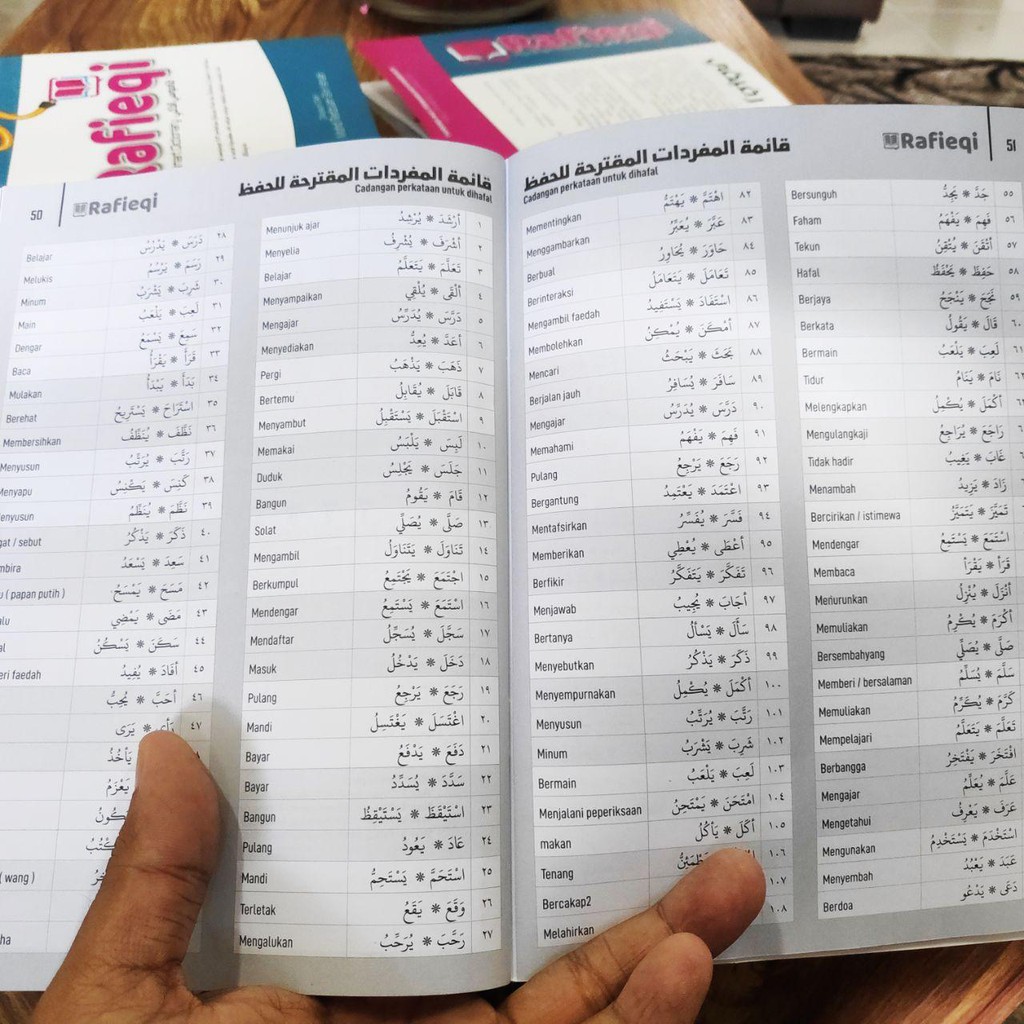 Rafieqi
Rafieqi
رفيقي
50
Rafieqi
قائمة المفردات المقترحة للحفظ
Cadangan perkataan untuk dihafal
Menunjuk ajar أَرْشَدَ * يُرْشِدُ ١
Menyelia أَشْرَفَ * يُشْرِفُ ٢
Belajar تَعَلَّمَ * يَتَعَلَّمُ ٣
Menyampaikan أَلْقَى * يُلْقِي ٤
Mengajar دَرَّسَ * يُدَرِّسُ ٥
Menyediakan أَعَدَّ * يُعِدُّ ٦
Pergi ذَهَبَ * يَذْهَبُ ٧
Bertemu قَابَلَ * يُقَابِلُ ٨
Menyambut اسْتَقْبَلَ * يَسْتَقْبِلُ ٩
Memakai لَبِسَ * يَلْبَسُ ١٠
Duduk جَلَسَ * يَجْلِسُ ١١
Bangun قَامَ * يَقُومُ ١٢
Solat صَلَّى * يُصَلِّي ١٣
Mengambil تَنَاوَلَ * يَتَنَاوَلُ ١٤
Berkumpul اجْتَمَعَ * يَجْتَمِعُ ١٥
Mendengar اسْتَمَعَ * يَسْتَمِعُ ١٦
Mendaftar سَجَّلَ * يُسَجِّلُ ١٧
Masuk دَخَلَ * يَدْخُلُ ١٨
Pulang رَجَعَ * يَرْجِعُ ١٩
Mandi اغْتَسَلَ * يَغْتَسِلُ ٢٠
Bayar دَفَعَ * يَدْفَعُ ٢١
Bayar سَدَّدَ * يُسَدِّدُ ٢٢
Bangun اسْتَيْقَظَ * يَسْتَيْقِظُ ٢٣
Pulang عَادَ * يَعُودُ ٢٤
Mandi اسْتَحَمَّ * يَسْتَحِمُّ ٢٥
Terletak وَقَعَ * يَقَعُ ٢٦
Mengalukan رَحَّبَ * يُرَحِّبُ ٢٧
Belajar دَرَسَ * يَدْرُسُ ٢٨
Melukis رَسَمَ * يَرْسُمُ ٢٩
Minum شَرِبَ * يَشْرَبُ ٣٠
Main لَعِبَ * يَلْعَبُ ٣١
Dengar سَمِعَ * يَسْمَعُ ٣٢
Baca قَرَأَ * يَقْرَأُ ٣٣
Mulakan بَدَأَ * يَبْدَأُ ٣٤
Berehat اسْتَرَاحَ * يَسْتَرِيحُ ٣٥
Membersihkan نَظَّفَ * يُنَظِّفُ ٣٦
Menyusun رَتَّبَ * يُرَتِّبُ ٣٧
Menyapu كَنَسَ * يَكْنِسُ ٣٨
enyusun نَظَّمَ * يُنَظِّمُ ٣٩
gat / sebut ذَكَرَ * يَذْكُرُ ٤٠
mbira سَعِدَ * يَسْعَدُ ٤١
u ( papan putih ) مَسَحَ * يَمْسَحُ ٤٢
alu مَضَى * يَمْضِي ٤٣
al سَكَنَ * يَسْكُنُ ٤٤
eri faedah أَفَادَ * يُفِيدُ ٤٥
أَحَبَّ * يُحِبُّ ٤٦
* يَرَى ٤٧
يَأْخُذُ
يَعْزِمُ
( wang )
ha
51
Rafieqi
قائمة المفردات المقترحة للحفظ
Cadangan perkataan untuk dihafal
Bersunguh جَدَّ * يَجِدُّ ٥٥
Faham فَهِمَ * يَفْهَمُ ٥٦
Tekun أَتْقَنَ * يُتْقِنُ ٥٧
Hafal حَفِظَ * يَحْفَظُ ٥٨
Berjaya نَجَحَ * يَنْجَحُ ٥٩
Berkata قَالَ * يَقُولُ ٦٠
Bermain لَعِبَ * يَلْعَبُ
Tidur نَامَ * يَنَامُ
Melengkapkan أَكْمَلَ * يُكْمِلُ
Mengulangkaji رَاجَعَ * يُرَاجِعُ
Tidak hadir غَابَ * يَغِيبُ
Menambah زَادَ * يَزِيدُ
Bercirikan / istimewa تَمَيَّزَ * يَتَمَيَّزُ
Mendengar اسْتَمَعَ * يَسْتَمِعُ
Membaca قَرَأَ * يَقْرَأُ
Menurunkan أَنْزَلَ * يُنْزِلُ
Memuliakan أَكْرَمَ * يُكْرِمُ
Bersembahyang صَلَّى * يُصَلِّي
Memberi / bersalaman سَلَّمَ * يُسَلِّمُ
Memuliakan كَرَّمَ * يُكَرِّمُ
Mempelajari تَعَلَّمَ * يَتَعَلَّمُ
Berbangga افْتَخَرَ * يَفْتَخِرُ
Mengajar عَلَّمَ * يُعَلِّمُ
Mengetahui عَرَفَ * يَعْرِفُ
Mengunakan اسْتَخْدَمَ * يَسْتَخْدِمُ
Menyembah عَبَدَ * يَعْبُدُ
Berdoa دَعَى * يَدْعُو
Mementingkan اهْتَمَّ * يَهْتَمُّ ٨٢
Menggambarkan عَبَّرَ * يُعَبِّرُ ٨٣
Berbual حَاوَرَ * يُحَاوِرُ ٨٤
Berinteraksi تَعَامَلَ * يَتَعَامَلُ ٨٥
Mengambil faedah اسْتَفَادَ * يَسْتَفِيدُ ٨٦
Membolehkan أَمْكَنَ * يُمْكِنُ ٨٧
Mencari بَحَثَ * يَبْحَثُ ٨٨
Berjalan jauh سَافَرَ * يُسَافِرُ ٨٩
Mengajar دَرَّسَ * يُدَرِّسُ ٩٠
Memahami فَهِمَ * يَفْهَمُ ٩١
Pulang رَجَعَ * يَرْجِعُ ٩٢
Bergantung اعْتَمَدَ * يَعْتَمِدُ ٩٣
Mentafsirkan فَسَّرَ * يُفَسِّرُ ٩٤
Memberikan أَعْطَى * يُعْطِي ٩٥
Berfikir تَفَكَّرَ * يَتَفَكَّرُ ٩٦
Menjawab أَجَابَ * يُجِيبُ ٩٧
Bertanya سَأَلَ * يَسْأَلُ ٩٨
Menyebutkan ذَكَرَ * يَذْكُرُ ٩٩
Menyempurnakan أَكْمَلَ * يُكْمِلُ ١٠٠
Menyusun رَتَّبَ * يُرَتِّبُ ١٠١
Minum شَرِبَ * يَشْرَبُ ١٠٢
Bermain لَعِبَ * يَلْعَبُ ١٠٣
Menjalani peperiksaan امْتَحَنَ * يَمْتَحِنُ ١٠٤
makan أَكَلَ * يَأْكُلُ ١٠٥
Tenang ١٠٦
Bercakap2 ١٠٧
Melahirkan ١٠٨